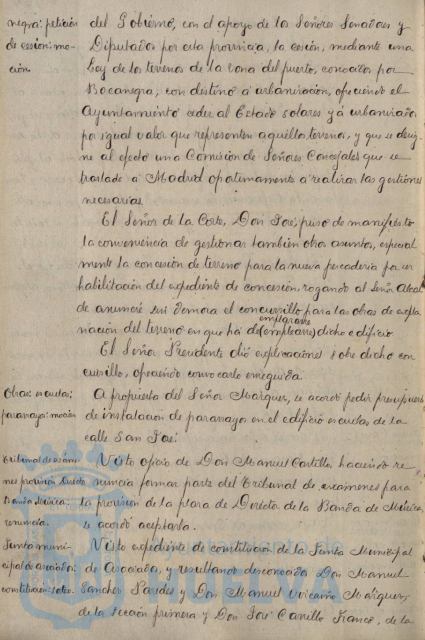 negra: petición
de cesión: mo-
ción.
del Gobierno, con el apoyo de los Señores Senadores y
Diputados por esta provincia, la cesión, mediante una
Ley de los terrenos de la zona del puerto, conocidos por
Bocanegra, con destino a urbanización, ofreciendo el
Ayuntamiento ceder al Estado solares ya urbanizados
por igual valor que representen aquellos terrenos, y que se desig-
ne al efecto una Comisión de Señores Concejales que se
traslade a Madrid oportunamente a realizar las gestiones
necesarias.
El Señor de la Corte, Don José, puso de manifiesto
la conveniencia de gestionar también otros asuntos, especial-
mente la concesión de terreno para la nueva pescadería por
habilitación del expediente de concesión, rogando al Señor Alcal-
de anuncie sin demora el concursillo para las obras de expla-
nación del terreno en que ha de (emplearse) emplazarse dicho edificio.
El Señor Presidente dió explicaciones sobre dicho con-
cursillo, ofreciendo convocarlo enseguida.
Obras: escuelas:
pararrayos: moción
A propuesta del Señor Márquez, se acordó pedir presupuesto
de instalación de pararrayos en el edificio escuelas de la
calle San José.
Tribunal de exáme-
nes provisión Director
Banda Música:
renuncia.
Visto oficio de Don Manuel Castillo, haciendo re-
nuncia formar parte del Tribunal de exámenes para
la provisión de la plaza de Director de la Banda de Música,
se acordó aceptarla.
Junta muni-
cipal de asociados:
constitución: sorteo.
Visto expediente de constitución de la Junta Municipal
de Asociados, y resultando desconocidos Don Manuel
Sánchez Paredes y Don Manuel Vizcaíno Márquez,
de la sección primera y Don José Carrillo Franco, de la
Ayuntamiento de
HUELVA